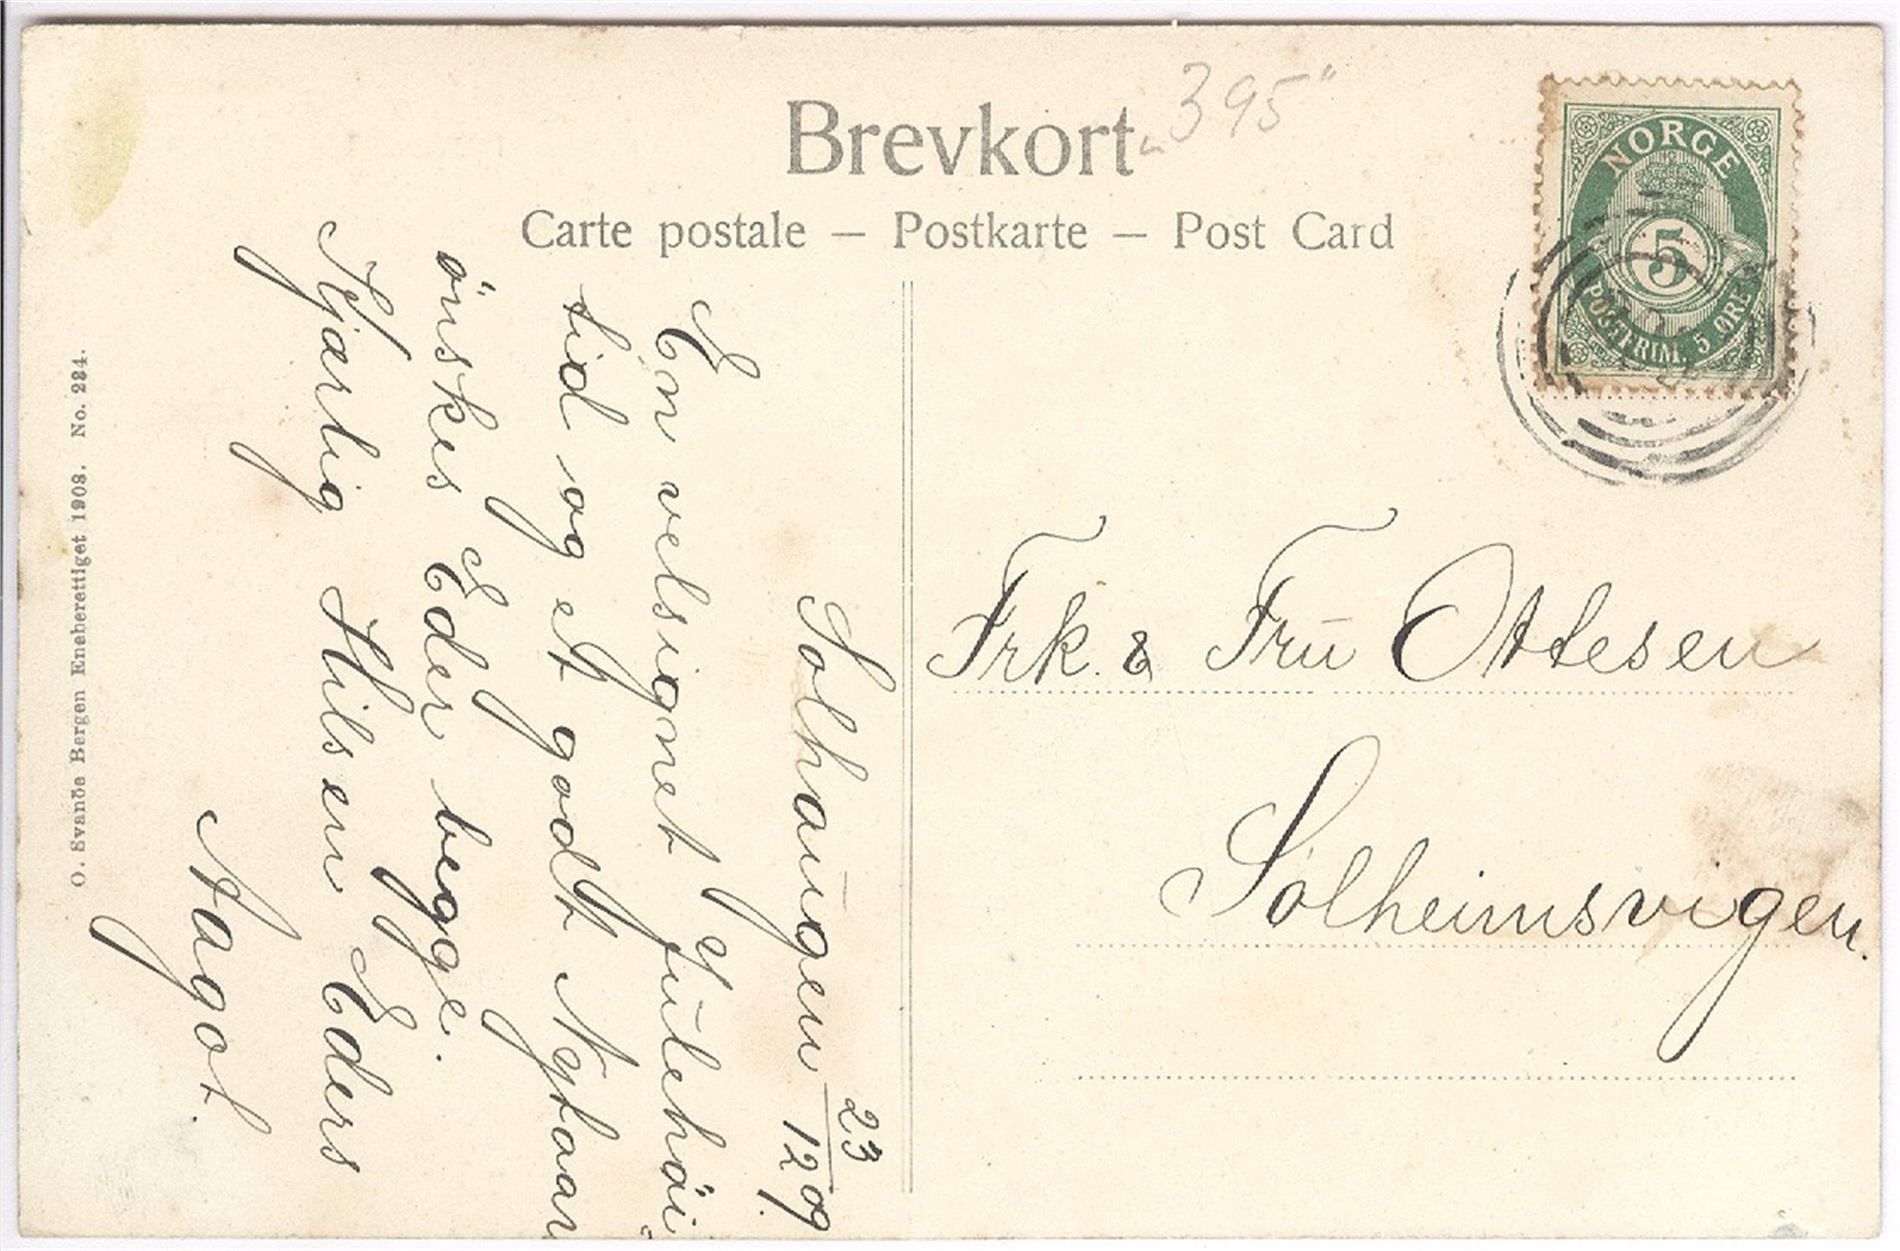 Brevkort
395
Carte postale – Postkarte – Post Card
NORGE
5
POSTFRIM. 5 ØRE
Solhaugen 23/12 09.
En velsignet Julehöi
tid og et godt Nytaar
önskes Eder begge.
Kjærlig Hilsen Eders
Aagot.
Frk. & Fru Ottesen
Solheimsvigen.
O. Evanös Bergen Eneberettiget 1908. No. 234.